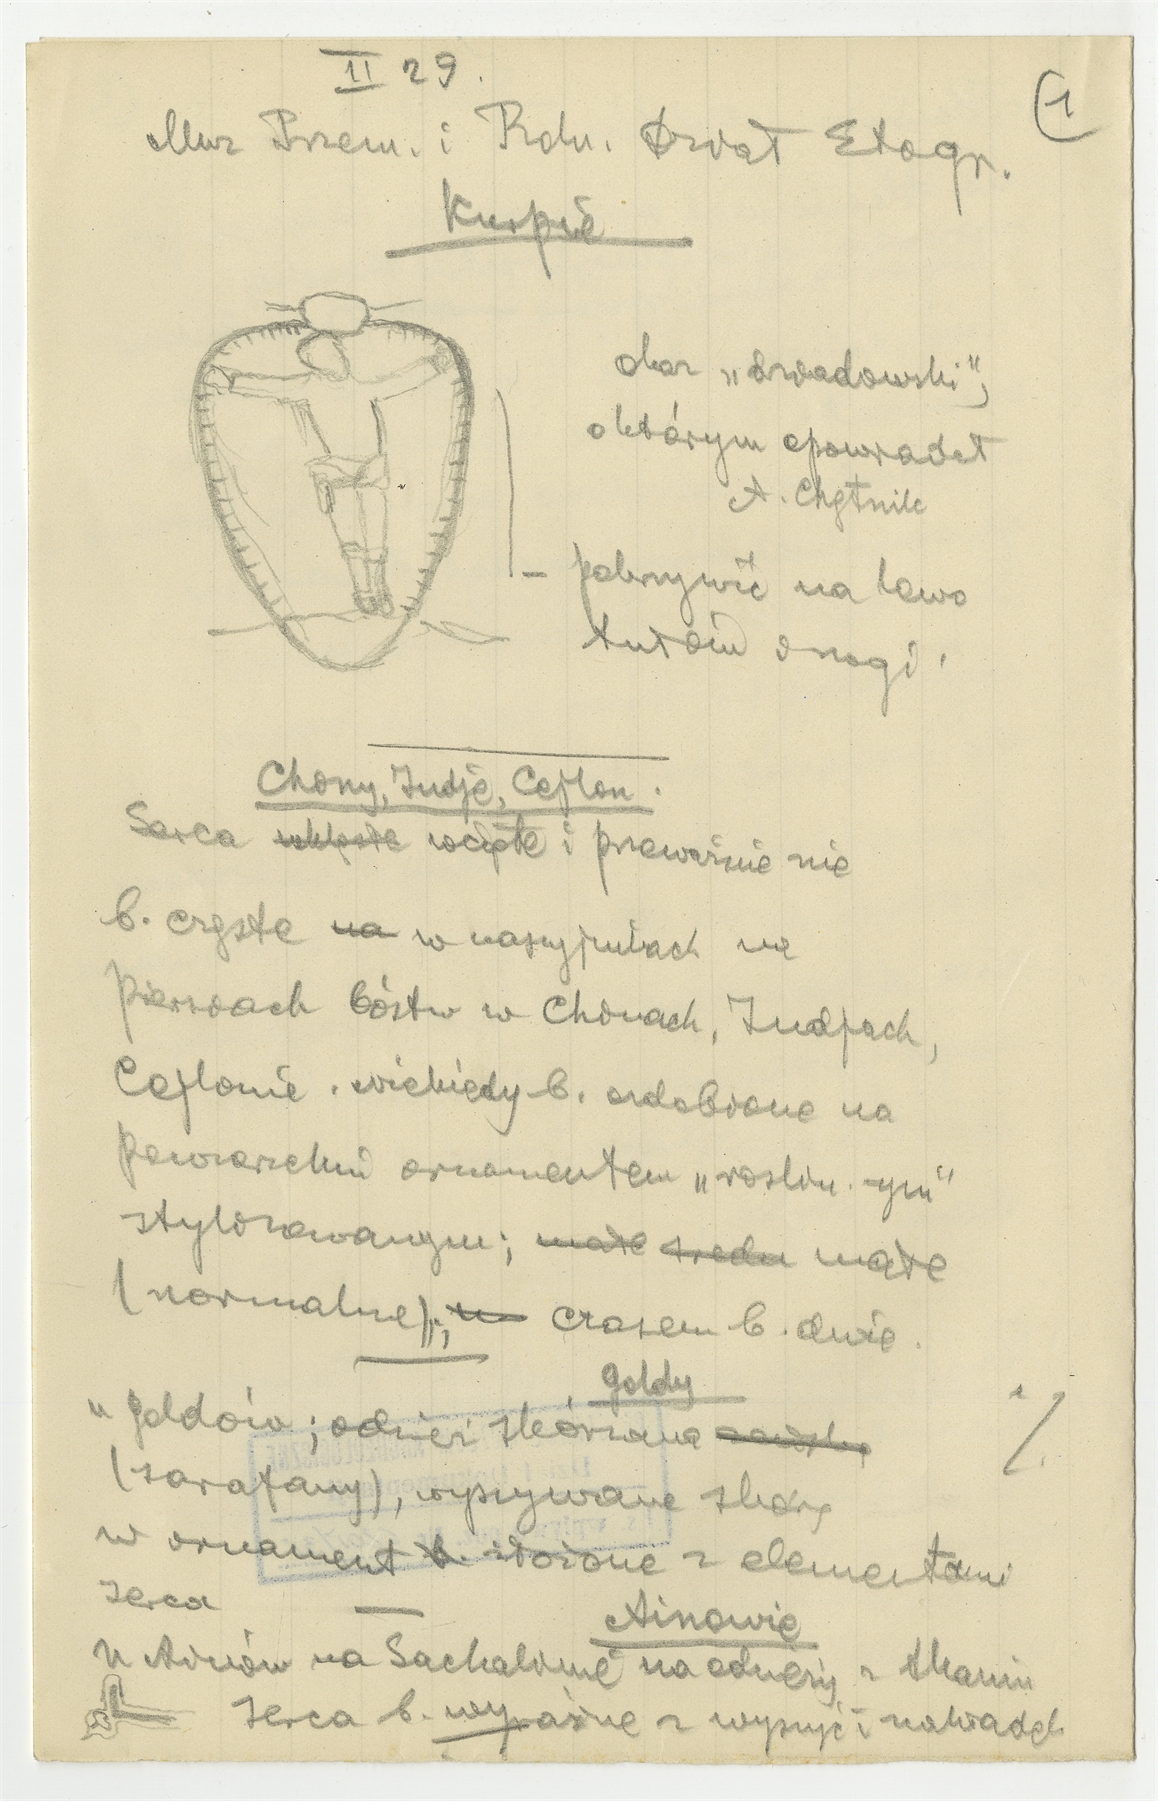 II 29.
1
Muz Przem. i Roln. Dział Etogr.
Kurpie
obraz
o którym opowiadał
A. Chętnik
– pokrzywić na lewo
tułów i nogi.
Chiny, Indje, Cejlon.
Serca wklęsłe wcięte i przeważnie nie
b. częste na w naszyjnikach na
piersiach bóstw w Chinach, Indjach,
Cejlonie. niekiedy b. ozdobione na
powierzchni ornamentem „roślin. -ym"
stylizowanym; małe średn małe
(normalne); czasem b. duże.
Goldy
u Goldów; odzież skórzana
(sarafany), wyszywane skórą
w ornament b. złożone z elementami
serca
Ainowie
U Ainów na Sachalinie na odzieży z tkanin
serca b. wyraźne z wyszyć i nakładek